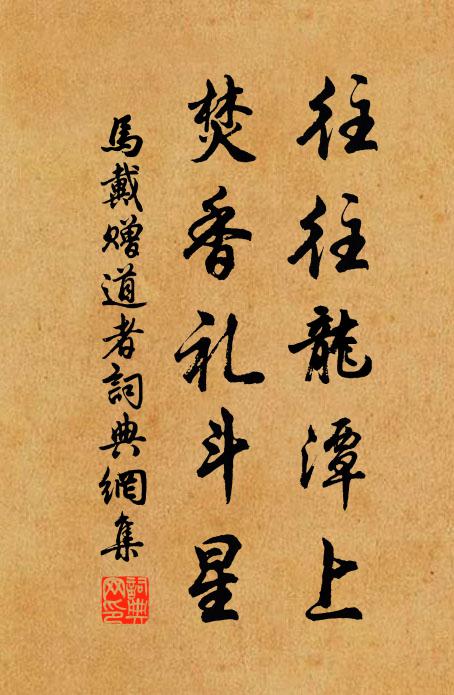 往往龍潭上
焚香礼斗星
馬戴贈道者詞典網集
詞典网印